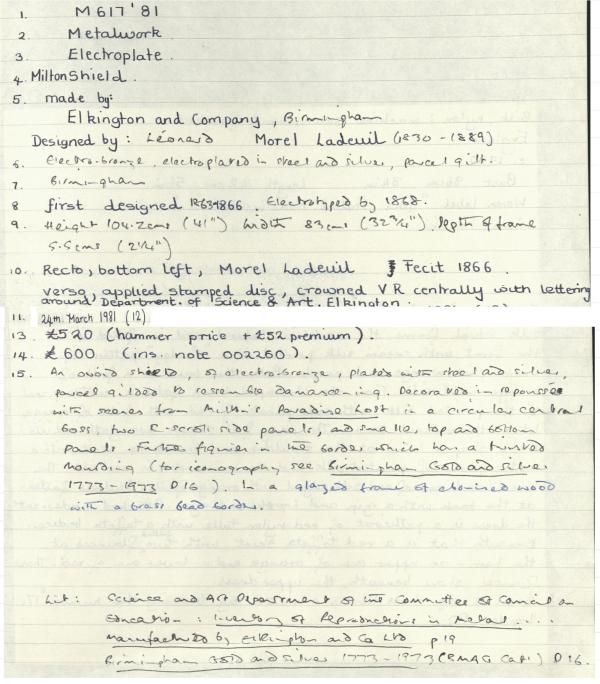 1. M 617'81
2. Metalwork
3. Electroplate.
4. Milton Shield.
5. made by:
Elkington and Company, Birmingham
Designed by: Léonard Morel Ladeuil (1830-1889)
6. Electro-bronze, electroplated in steel and silver, parcel gilt.
7. Birmingham
8 first designed 1866. Electrotyped by 1868.
9. Height 104.2cms (41") width 83cms (32¾"). depth of frame
5.5cms (2¼")
10. Recto, bottom left, Morel Ladeuil Fecit 1866.
verso, applied stamped disc, crowned V R centrally with lettering
around, Department. of Science & Art. Elkington.
11. 24th. March 1981 (12)
13. £520 (hammer price + £52 premium).
14. £600 (ins. note 002260).
15. An ovoid shield, of electro-bronze, plated with steel and silver,
parcel gilded to resemble damascening. Decorated in repoussée
with scenes from Milton's Paradise Lost in a circular central
boss, two C-scroll side panels, and smaller top and bottom
panels. Further figures in the border which has a twisted
moulding (for iconography see Birmingham Gold and Silver
1773-1973 D16). In a glazed frame of ebonised wood
with a brass bead border.
Lit: Science and Art Department of the Committee of Council on
Education: Inventory of Reproductions in Metal....
manufactured by Elkington and Co Ltd p19
Birmingham Gold and Silver 1773-1973 (BMAG Cat.) D16.